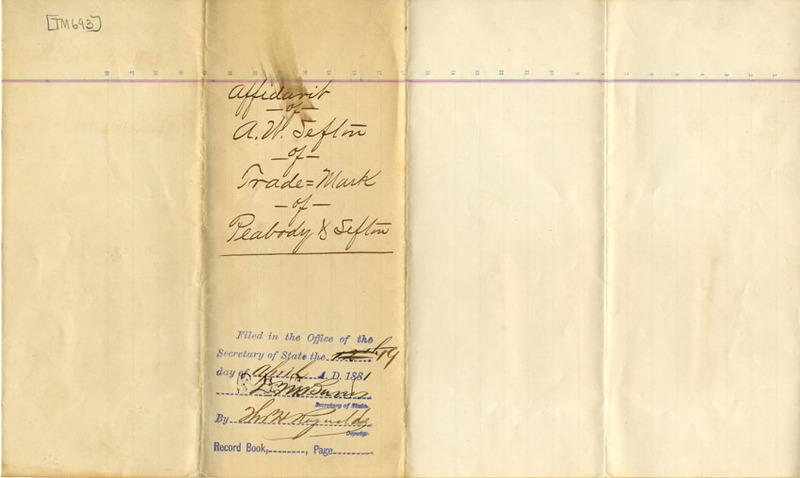 [TM693]
Affidavit
—of—
A. W. Sefton
—of—
Trade=Mark
—of—
Peabody & Sefton
Filed in the Office of the
Secretary of State the 19
day of April A. D. 1881
D. M. Burns
Secretary of State.
By Thos H Reynolds
Deputy.
Record Book, , Page